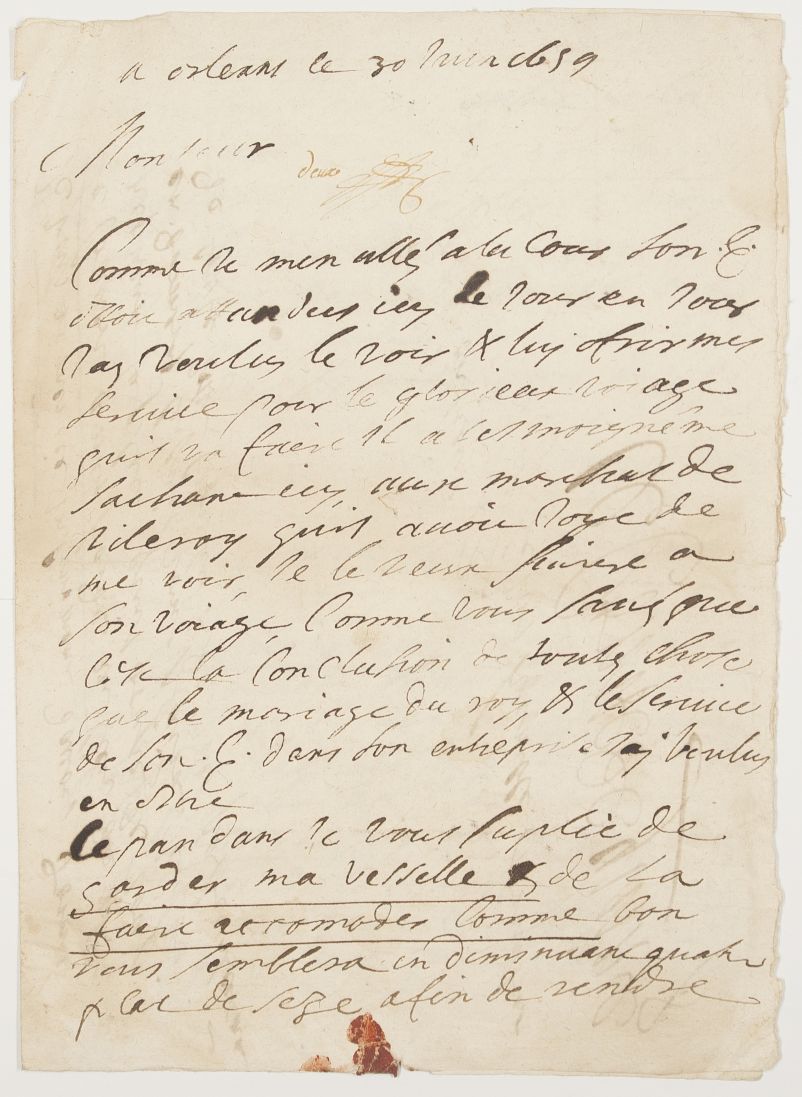 a orleans le 30 Iuin 1659
Monsieur
deux
Comme Ie men allés a la Cour son. E.
ettoit attandus icy le Iour en Iour
Iay voulus le voir & luy ofrir mes
service pour le glorieux voiage
quil va faire Il a tesmoigné me
sachant icy aux marechal de
vileroy quil auoit Ioye de
me voir, Ie le veux suivre a
son voiage, Comme vous saues que
cest la Conclusion de toutes chose
que le mariage du roy & le service
de son. E. dans son entreprise Iay voulus
en estre
Cepandans Ie vous suplie de
garder ma vesselle & de La
faire accomoder Comme bon
vous semblera en diminuant quatre
plat de seze afin de rendre